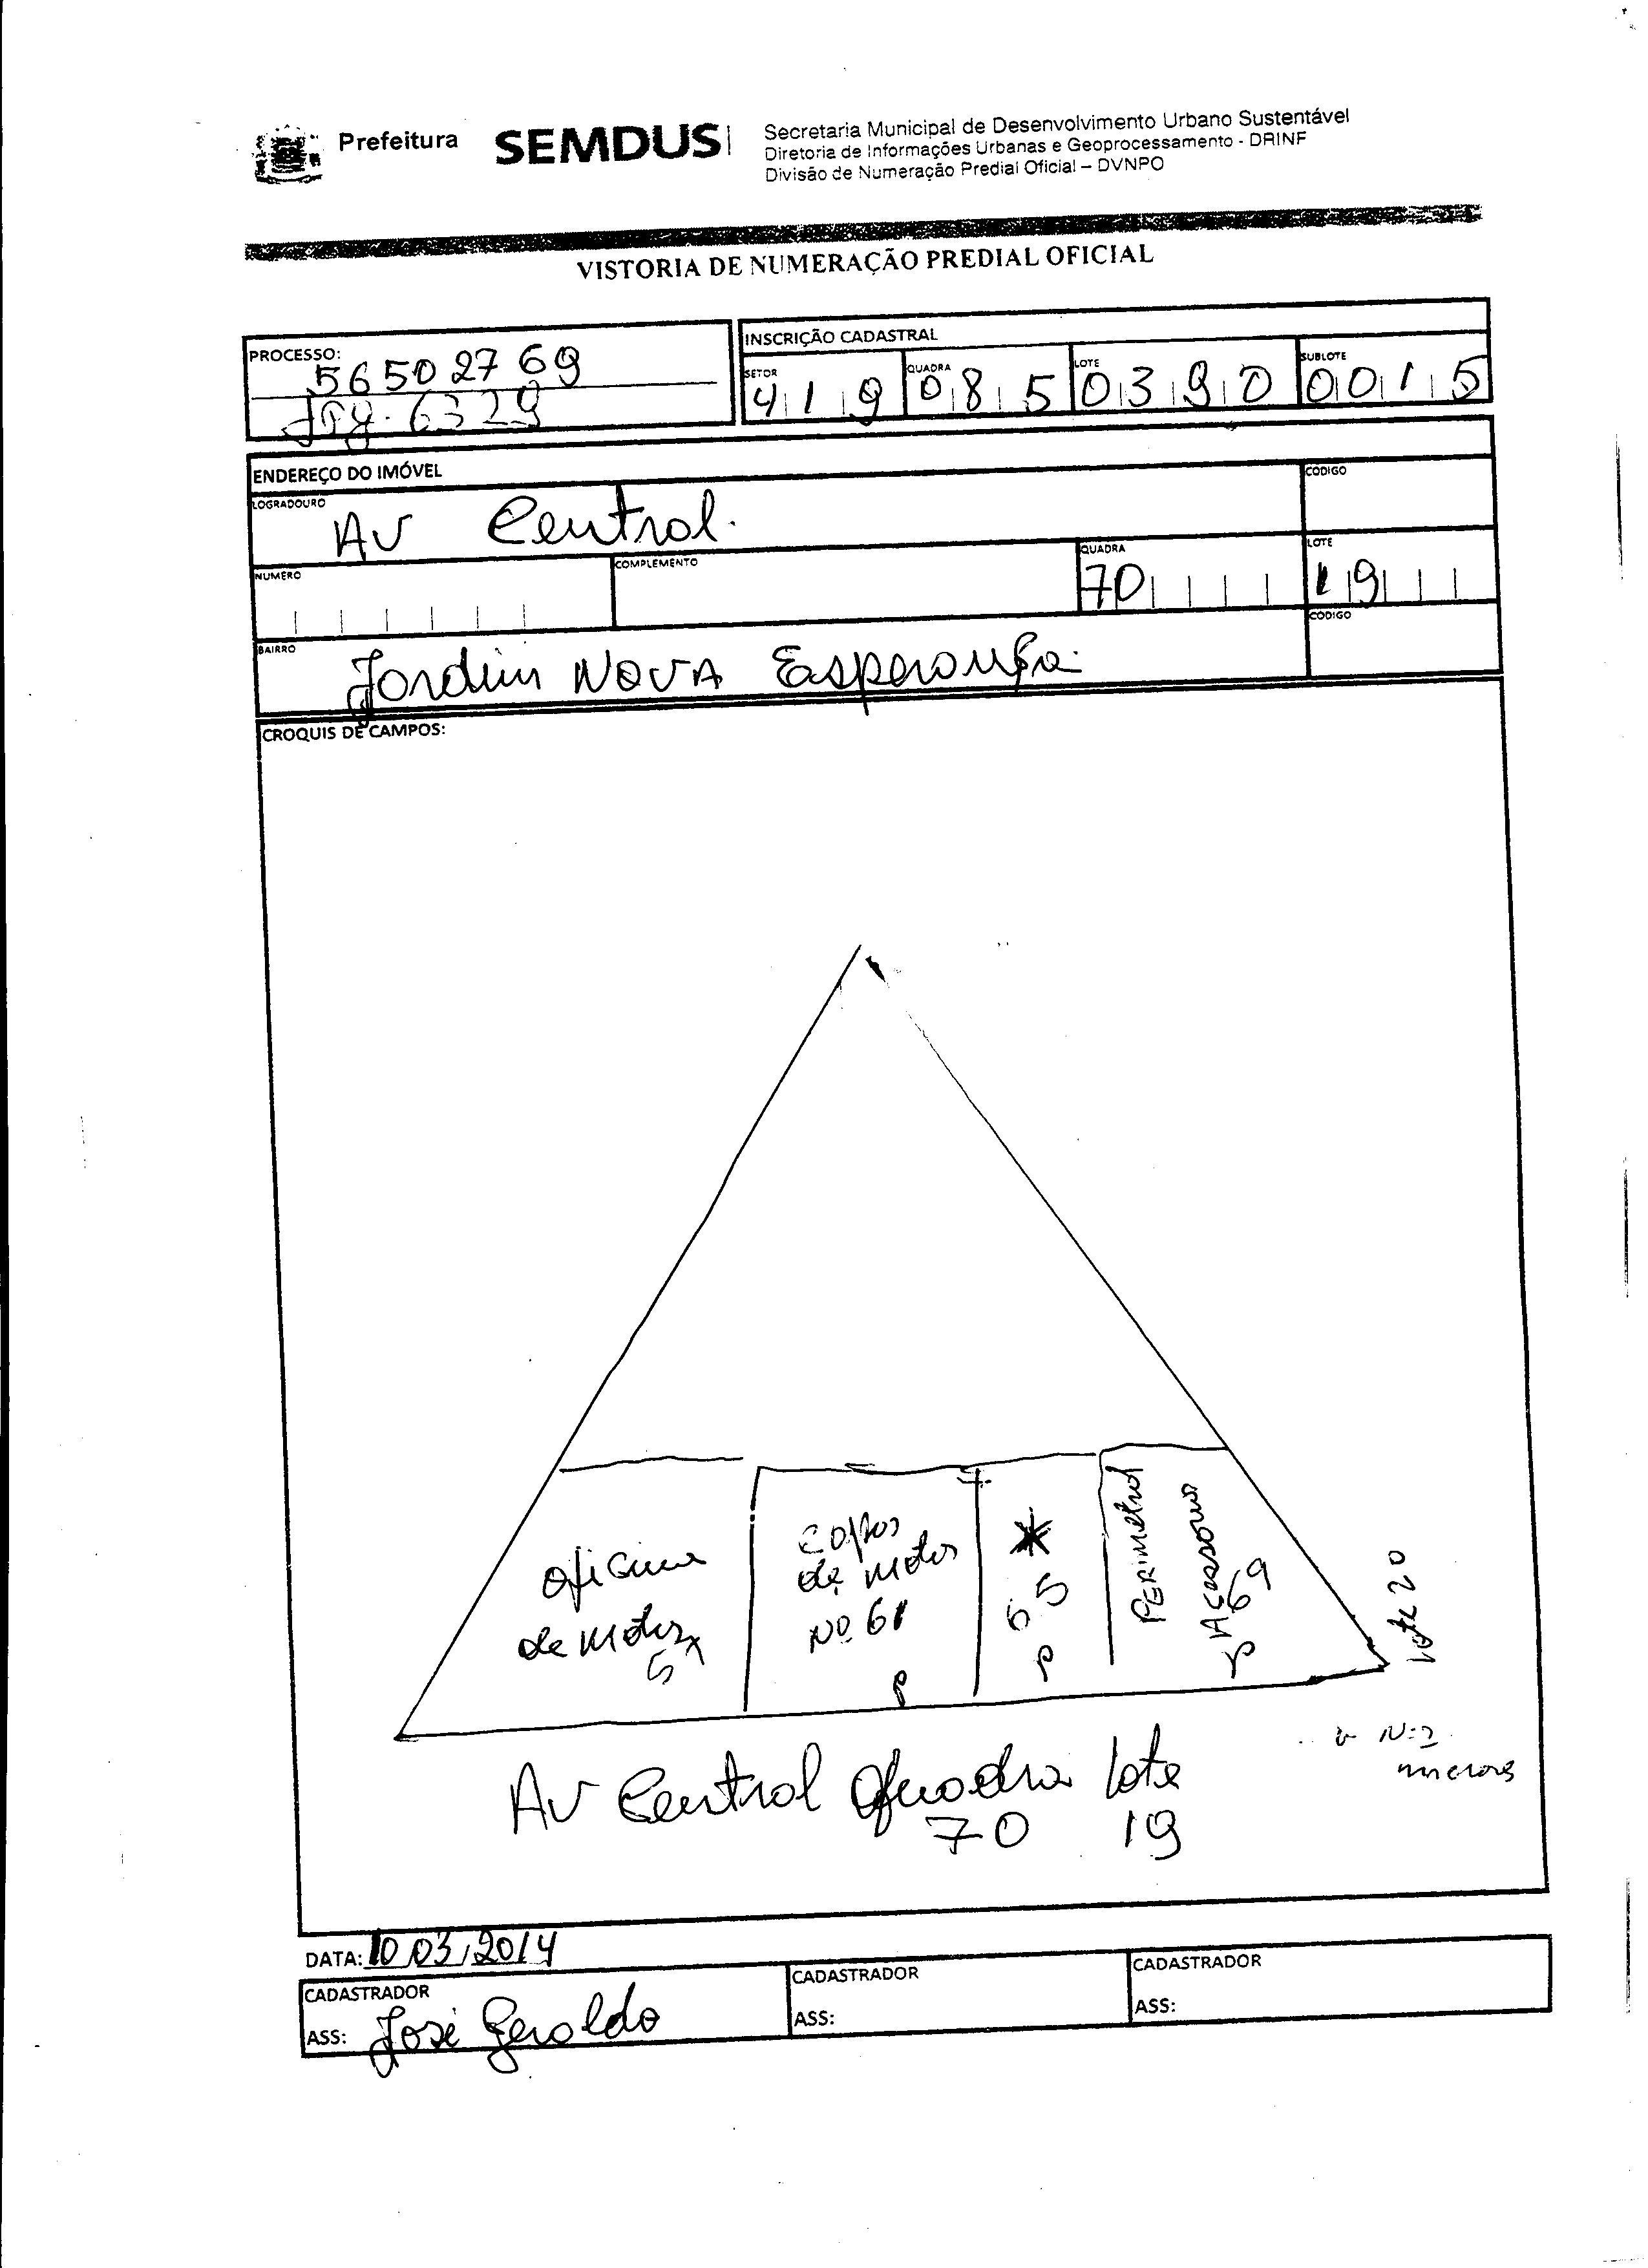 Prefeitura SEMDUS
Secretaria Municipal de Desenvolvimento Urbano Sustentável
Diretoria de Informações Urbanas e Geoprocessamento - DRINF
Divisão de Numeração Predial Oficial – DVNPO
VISTORIA DE NUMERAÇÃO PREDIAL OFICIAL
PROCESSO:
56502769
6329
INSCRIÇÃO CADASTRAL
SETOR QUADRA LOTE SUBLOTE
419 085 0390 0015
ENDEREÇO DO IMÓVEL
LOGRADOURO CODIGO
AV Central.
NUMERO COMPLEMENTO QUADRA LOTE
70 19
BAIRRO CODIGO
Jardim NOVA Esperança
CROQUIS DE CAMPOS:
oficina
de motos
57
de motos
Nº 61
P
65
P
PERIMETRAL
69
P
lote 20
AV Central Quadra lote
70 19
DATA: 10 03/2014
CADASTRADOR CADASTRADOR CADASTRADOR
ASS: José Geraldo ASS: ASS: